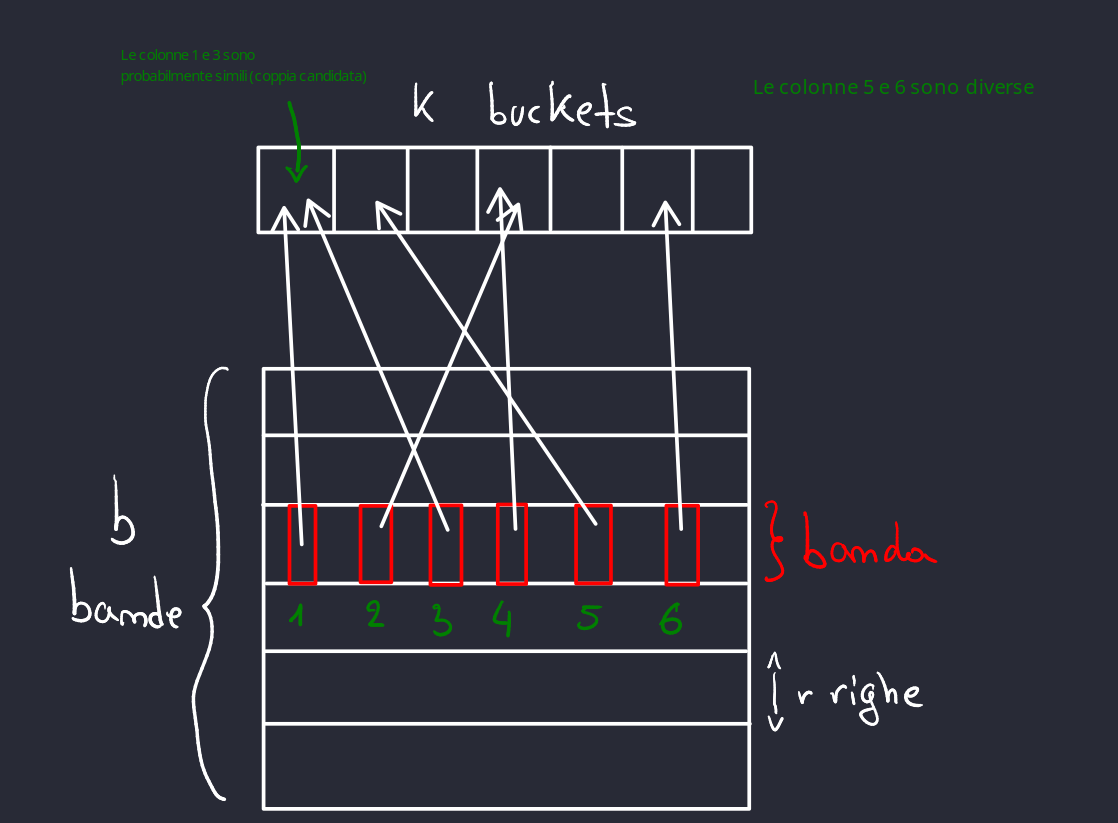 Le colonne 1 e 3 sono
probabilmente simili (coppia candidata)
k buckets
Le colonne 5 e 6 sono diverse
b
bande
banda
1 2 3 4 5 6
r righe